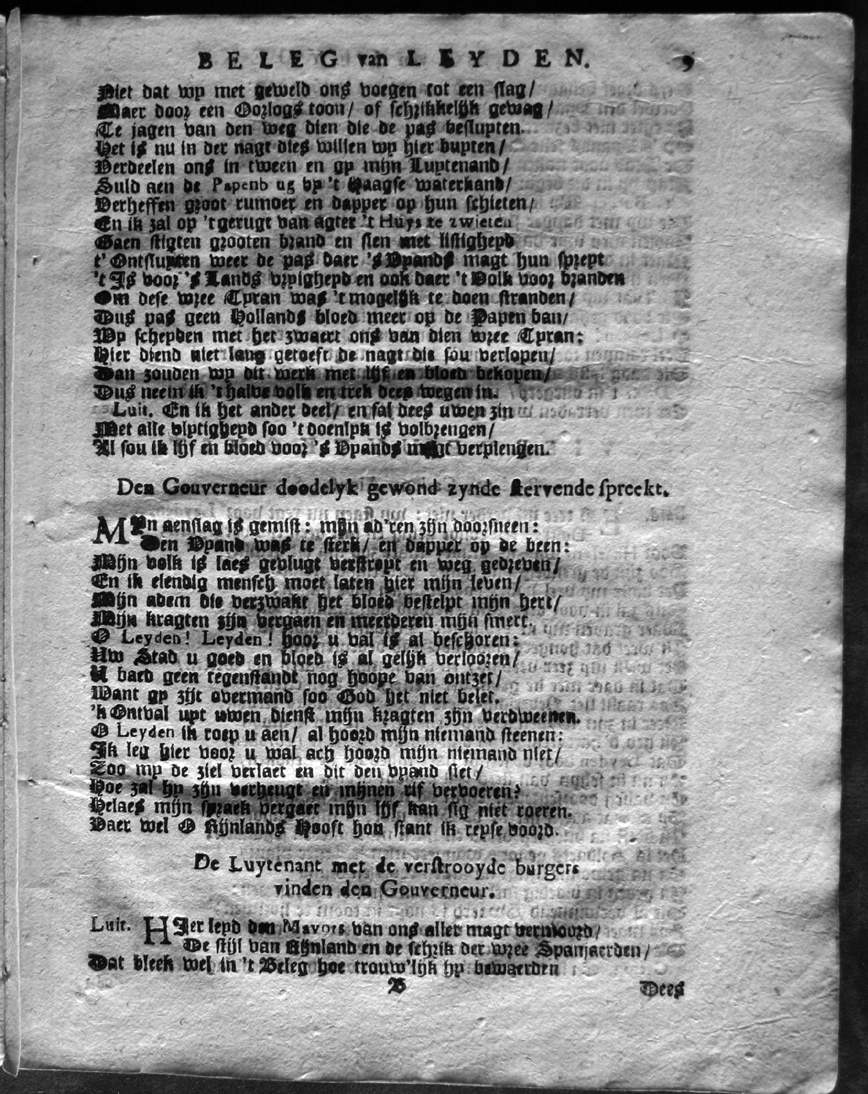 BELEG van LEYDEN. 9
Niet dat wy met geweld ons voegen tot een slag/
Maer door een Oorlogs toon/ of schrikkelijk gewag/
Te jagen van den weg dien die de pas beslupten.
Het is nu in der nagt dies willen wy hier buyten/
Verdeelen ons in tween en gy mijn Luytenand/
Suld aen de Papenb ug by 't Haagse waterkand/
Verheffen groot rumoer en dapper op hun schieten/
En ik zal op 't gerugt van agter 't Huys te zwieten
Gaen stigten grooten brand en sien met listigheyd
t' Ontslupten weer de pas daer 's Vyands magt hun spreyt
't Is voor 's Lands vryigheyd en ook daer 't Volk voor branden
Om dese wree Tyran was 't mogelijk te doen stranden/
Dus pas geen Hollands bloed meer op de Papen ban/
Wy scheyden met het zwaert ons van dien wree Tyran:
Hier diend niet lang getoeft de nagt die sou verlopen/
Dan zouden wy dit werk met lijf en bloed bekopen/
Dus neem ik 't halve volk en trek dees wegen in.
Luit. En ik het ander deel/ en sal dees uwen zin
Met alle vlytigheyd soo 't doenlyk is volbrengen/
Al sou ik lijf en bloed voor 's Vyands magt verplengen.
Den Gouverneur doodelyk gewond zynde stervende spreekt.
MYn aenslag is gemist: mijn ad'ren zijn doorsneen:
Den Vyand was te sterk/ en dapper op de been:
Mijn volk is laes gevlugt verstroyt en weg gedreven/
En ik elendig mensch moet laten hier mijn leven/
Mijn adem die verzwakt het bloed bestelpt mijn hert/
Mijn kragten zijn vergaen en meerderen mijn smert.
O Leyden! Leyden! hoor u val is al beschoren:
Uw Stad u goed en bloed is al gelijk verlooren/
U baed geen tegenstandt nog hoope van ontzet/
Want gy zijt overmand soo God het niet belet.
'k Ontval uyt uwen dienst mijn kragten zijn verdweenen.
O Leyden ik roep u aen/ al hoord mijn niemand steenen:
Ik leg hier voor u wal ach hoord mijn niemand niet/
Zoo my de ziel verlaet en dit den vyand siet/
Hoe zal hy zijn verheugt en mijnen rif vervoeren?
Helaes mijn spraek vergaet mijn lijf kan sig niet roeren.
Vaer wel O Rijnlands Hooft hou stant ik reyse voord.
De Luytenant met de verstrooyde burgers
vinden den Gouverneur.
Luit. HIer leyd den Mavors van ons aller magt vermoord/
De stijl van Rijnland en de schrik der wree Spanjaerden/
Dat bleek wel in 't Beleg hoe trouw'lijk hy bewaerden
B Dees